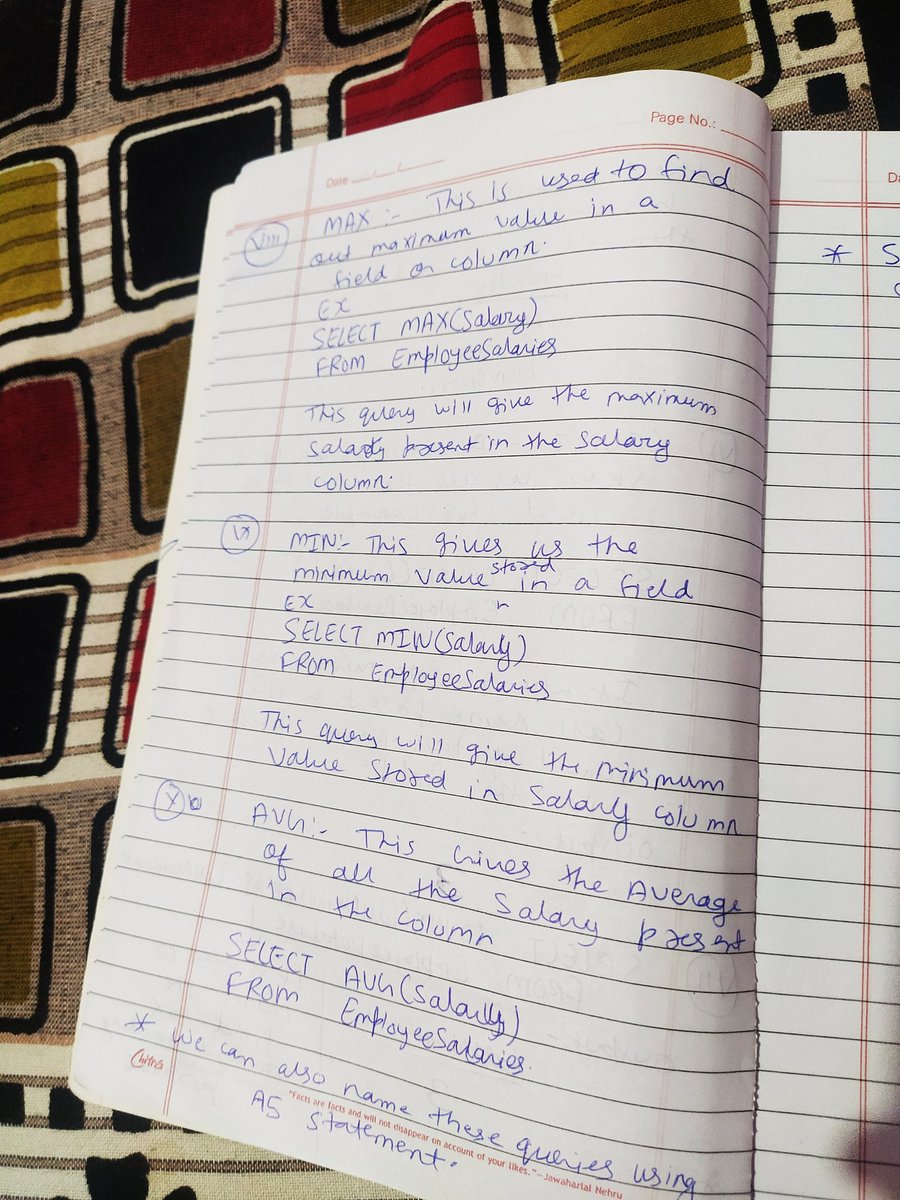 Page No.:
Date
Da
(viii) MAX :- This is used to find
out maximum value in a
field or column.
Ex
SELECT MAX(Salary)
FROM EmployeeSalaries
This query will give the maximum
salary present in the salary
column.
(ix) MIN:- This gives us the
minimum value stored in a field
Ex
SELECT MIN(Salary)
FROM EmployeeSalaries
This query will give the minimum
value stored in salary column
(x) AVG:- This Gives the Average
of all the Salary present
in the column
SELECT AVG(Salary)
FROM EmployeeSalaries.
* We can also name these queries using
AS Statement.
Chitra
"Facts are facts and will not disappear on account of your likes."–Jawaharlal Nehru
* S